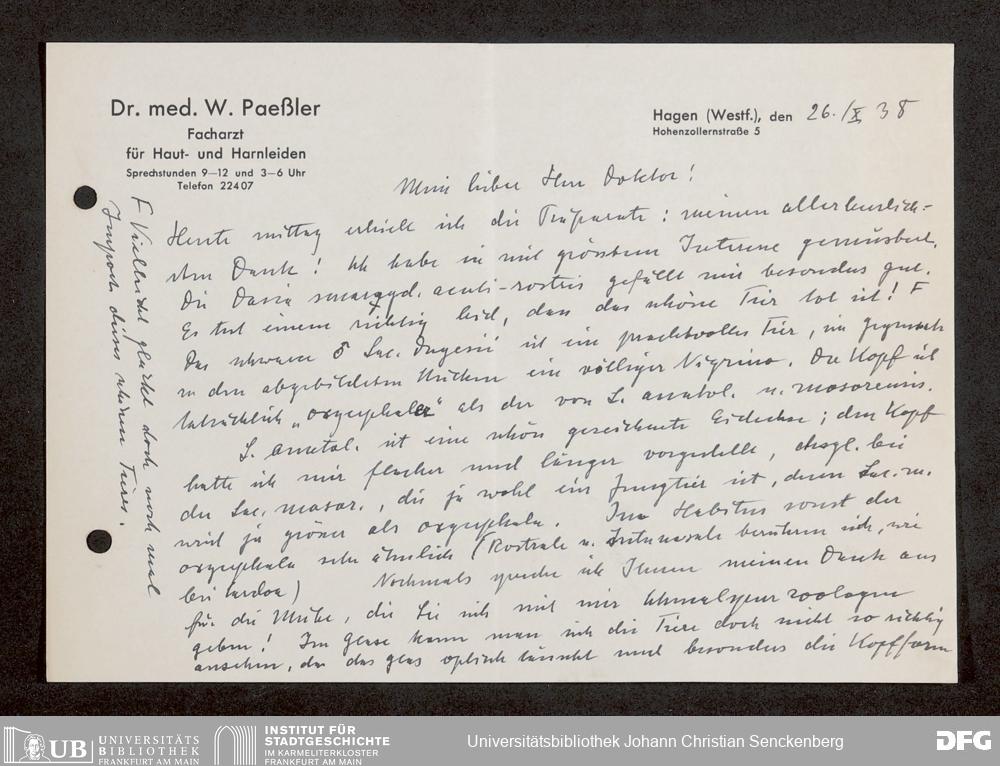 Dr. med. W. Paeßler
Facharzt
für Haut- und Harnleiden
Sprechstunden 9—12 und 3—6 Uhr
Telefon 22407
Hagen (Westf.), den 26./X 38
Hohenzollernstraße 5
Mein lieber Herr Doktor!
Heute mittag erhielt ich die Präparate: meinen allerherzlich-
sten Dank! Ich habe sie mit grösstem Interesse gemustert.
Die Dasia smaragd. acuti-rostris gefällt mir besonders gut.
Es tut einem richtig leid, dass das schöne Tier tot ist! F
Das schwarze ♂ Lac. Dugesii ist ein prachtvolles Tier, im Gegensatz
zu den abgebildeten Stücken ein völliger Nigrino. Der Kopf ist
tatsächlich „oxycephaler" als der von L. anatol. u. mosorensis.
L. anatol. ist eine schön gezeichnete Eidechse; den Kopf
hatte ich mir flacher und länger vorgestellt, desgl. bei
der Lac. mosor., die ja wohl ein Jungtier ist, denn Lac. m.
wird ja grösser als oxycephala. Im Habitus sonst der
oxycephala sehr ähnlich (Rostrale u. Internasale berühren sich, wie
bei beiden) Nochmals spreche ich Ihnen meinen Dank aus
für die Mühe, die Sie sich mit mir Schmalspurzoologen
geben! Im Glase kann man sich die Tiere doch nicht so richtig
ansehen, da das Glas optisch täuscht und besonders die Kopfform
F Vielleicht glückt doch noch mal
Import dieses schönen Tieres.
UB UNIVERSITÄTS
BIBLIOTHEK
FRANKFURT AM MAIN
INSTITUT FÜR
STADTGESCHICHTE
IM KARMELITERKLOSTER
FRANKFURT AM MAIN
Universitätsbibliothek Johann Christian Senckenberg
DFG